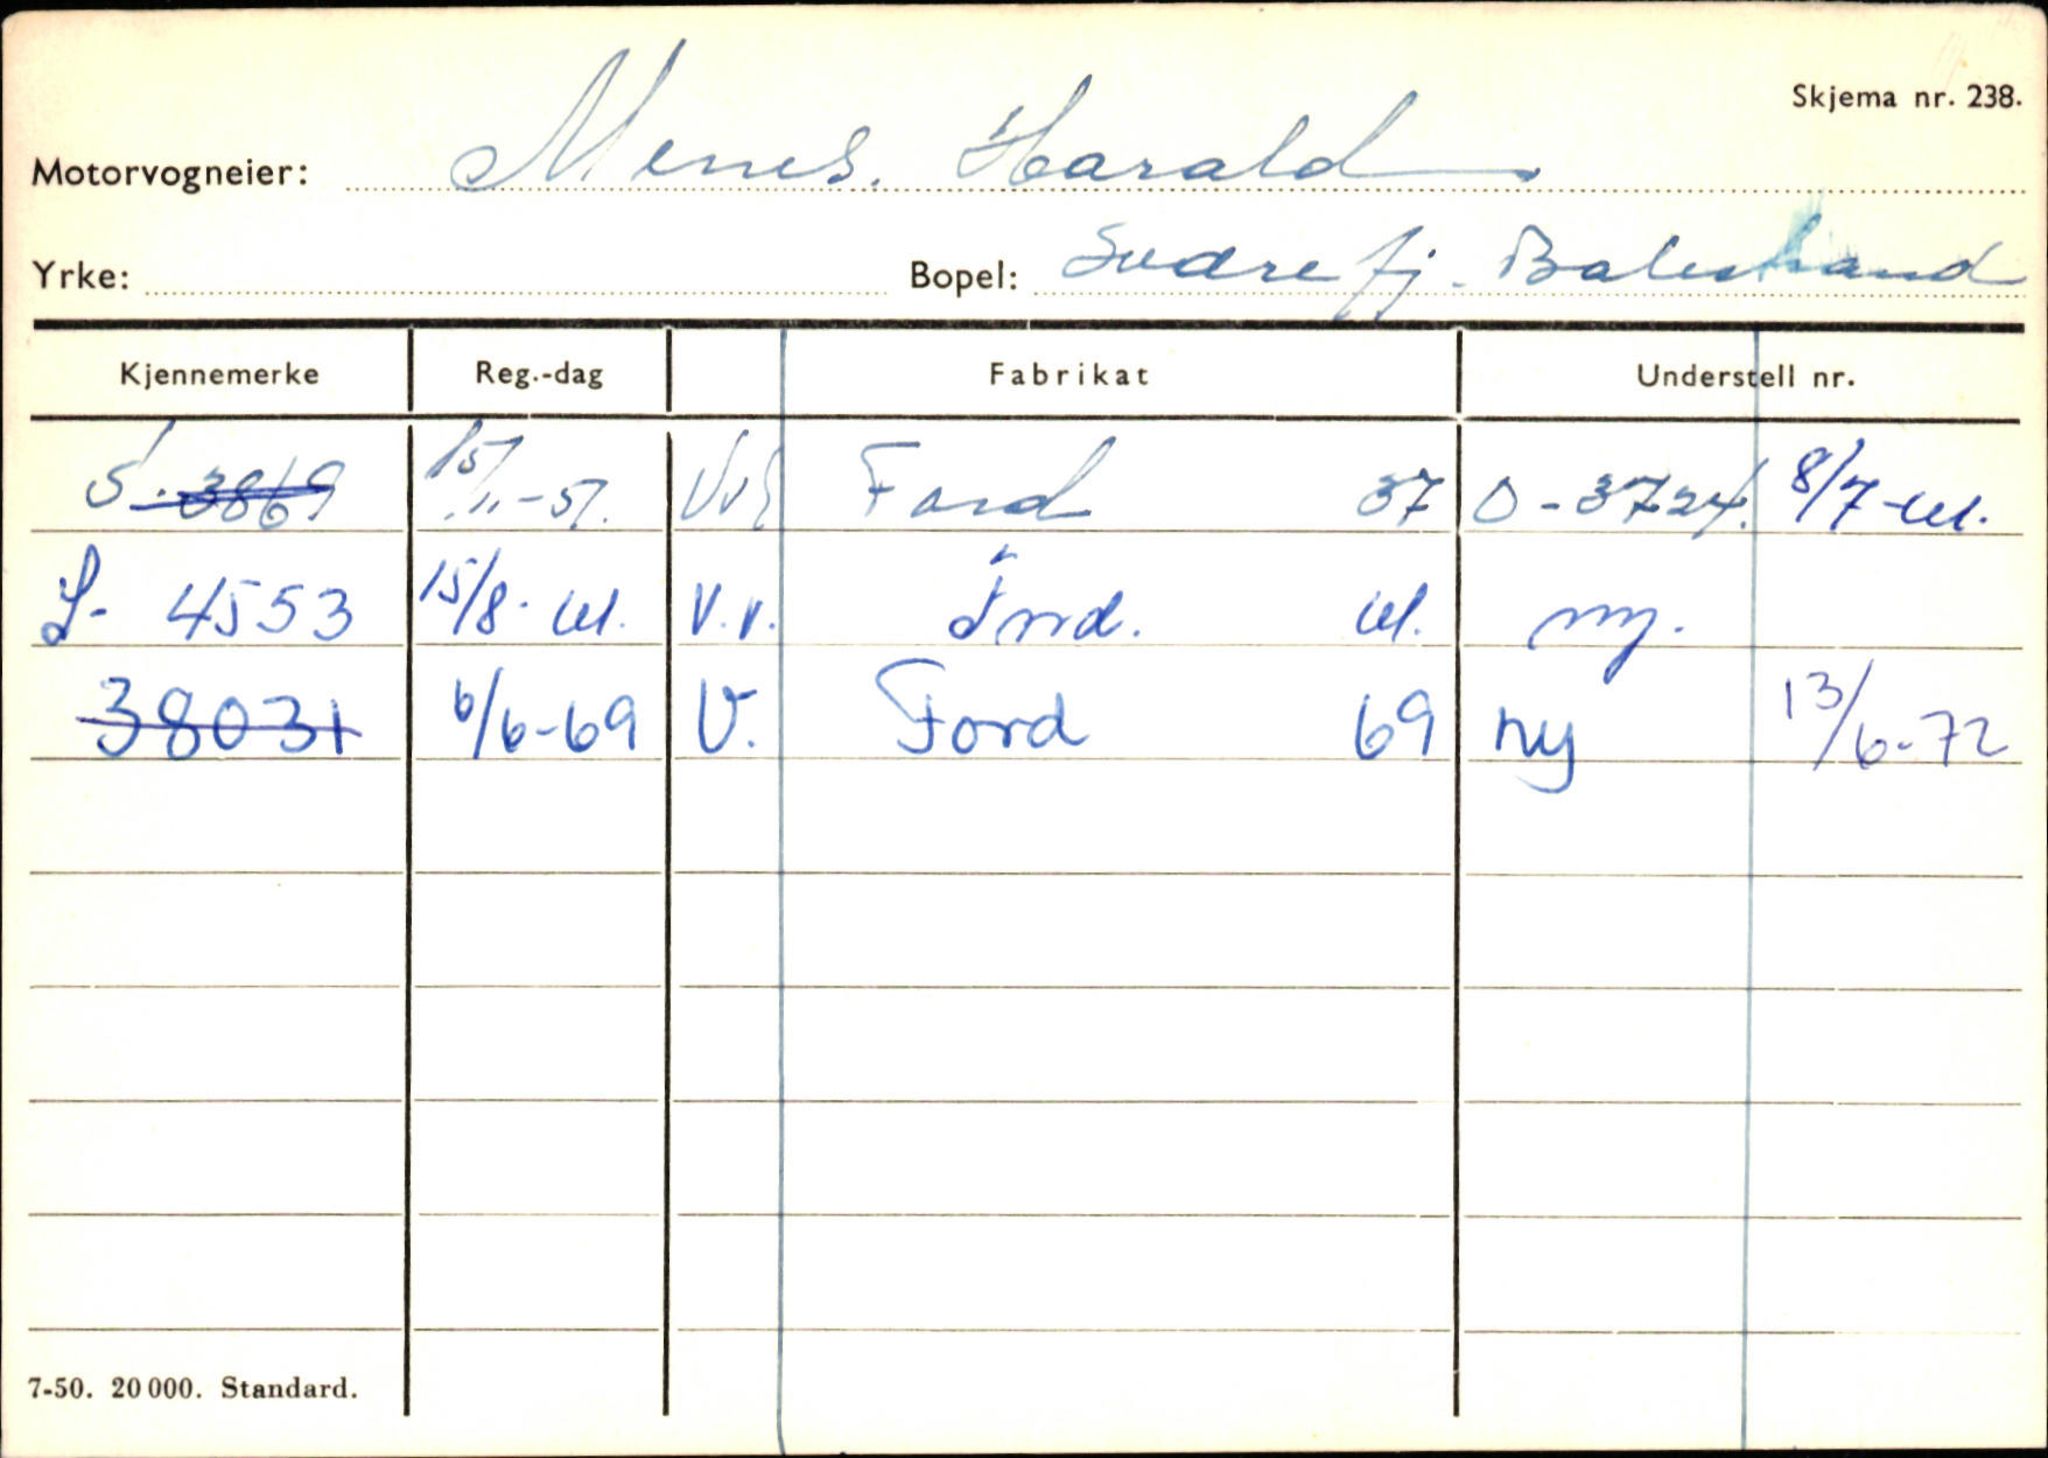 Skjema nr. 238.
Motorvogneier: Menes. Harald
Yrke: Bopel: Sværefj. Balestrand
Kjennemerke Reg.-dag Fabrikat Understell nr.
S. 3869 15/11-57. Ford 37 D-3724. 8/7-61.
S- 4553 15/8. 61. V.v. Ford. 61. ny.
38031 6/6-69 V. Ford 69 ny 13/6-72
7-50. 20 000. Standard.